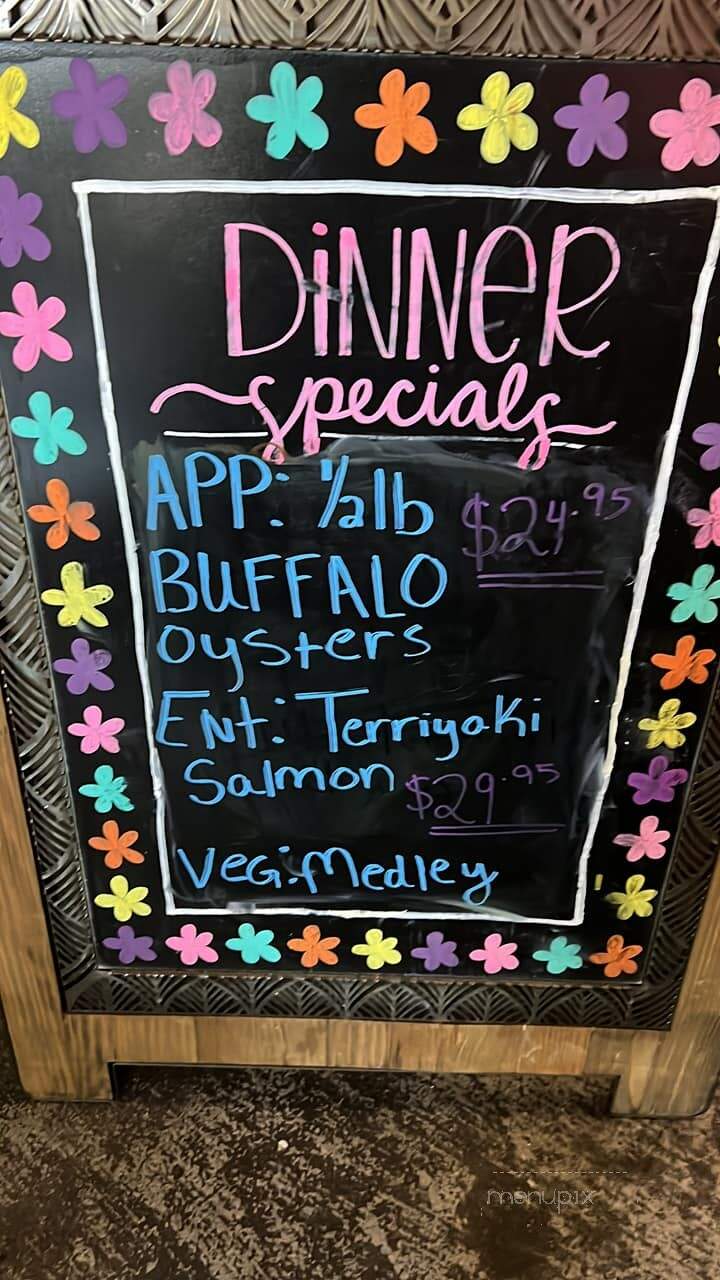 DiNNeR
specials
APP: 1/2lb $24.95
BUFFALO
oysters
ENt: Terriyaki
Salmon $29.95
VeG: Medley
menupix